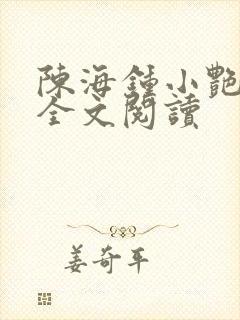 陳海鍾小艷
全文閱讀
姜奇平